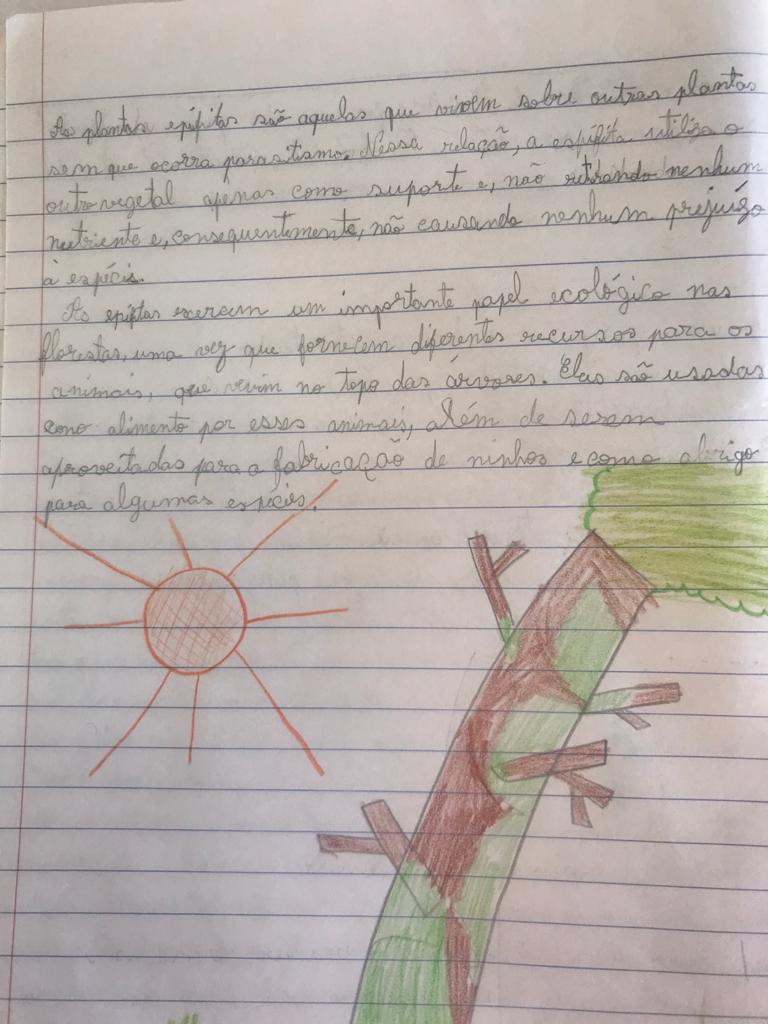 As plantas epífitas são aquelas que vivem sobre outras plantas
sem que ocorra parasitismo. Nessa relação, a espífita utiliza o
outro vegetal apenas como suporte e, não retirando nenhum
nutriente e, consequentimente, não causando nenhum prejuízo
à espécis.
As epífitas exercem um importante papel ecológico nas
florestas, uma vez que fornecem diferentes recursos para os
animais, que vivem no topo das árvores. Elas são usadas
como alimento por esses animais, além de serem
aproveitadas para a fabricação de ninhos e como abrigo
para algumas espécies.